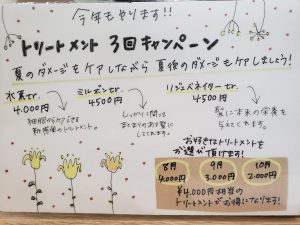 今年もやります!!
トリートメント 3回キャンペーン
夏のダメージをケアしながら 夏後のダメージもケアしましょう!
水素tr.
4.000円
細胞からケアする
新感覚のトリートメント。
ミルボンtr.
4500円
しっかりと潤って
まとまりのある髪に
してくれます。
リジュベネイターtr.
4500円
髪に本来の栄養を
与えてくれます。
お好きなトリートメントを
お選び頂けます!
8月 9月 10月
4.000円 3.000円 2.000円
¥4.000円相当の
トリートメントがお得になります!